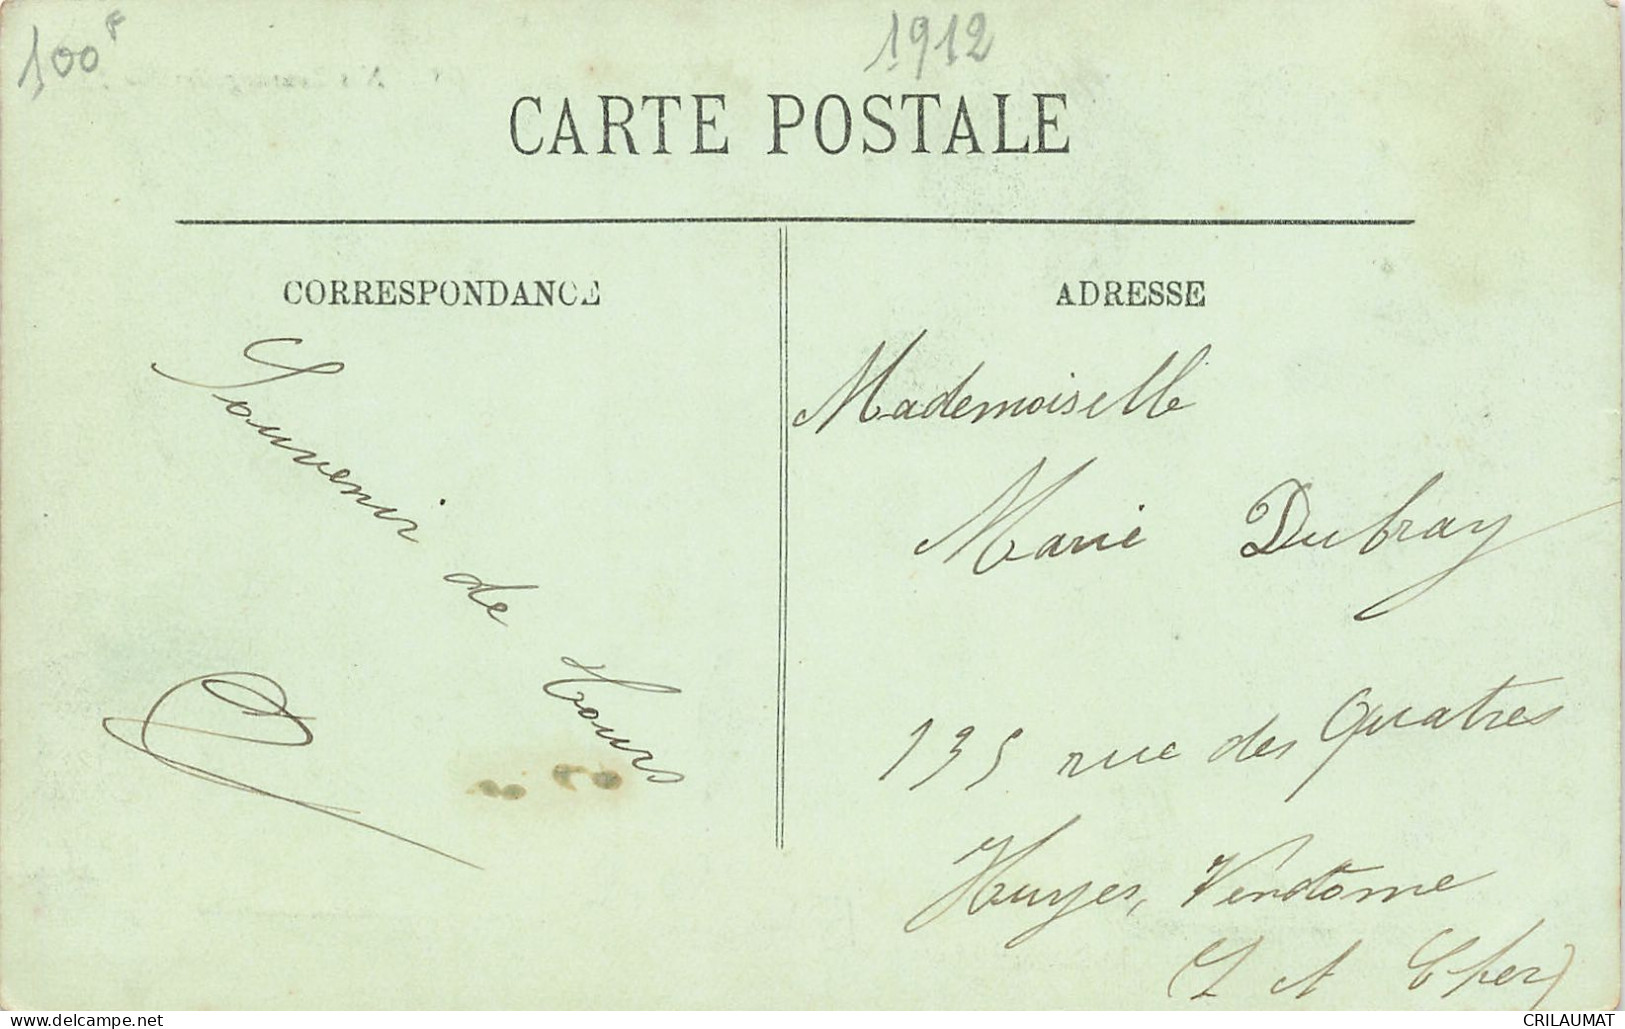 100F
1912
CARTE POSTALE
CORRESPONDANCE
Souvenir de Tours
ADRESSE
Mademoiselle
Marie Dubray
135 rue des Quatres
Huyes, Vendôme
(L et Cher)
CRILAUMAT